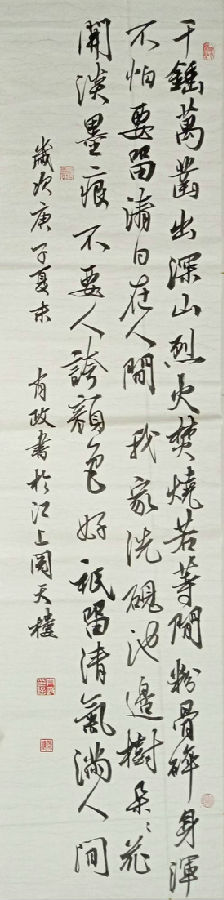 千錘萬鑿出深山烈火焚燒若等閒粉骨碎身渾
不怕要留清白在人間我家洗硯池邊樹朵朵花
開淡墨痕不要人誇顏色好祇留清氣滿人間
歲次庚子夏末 有政書於江上閣天樓